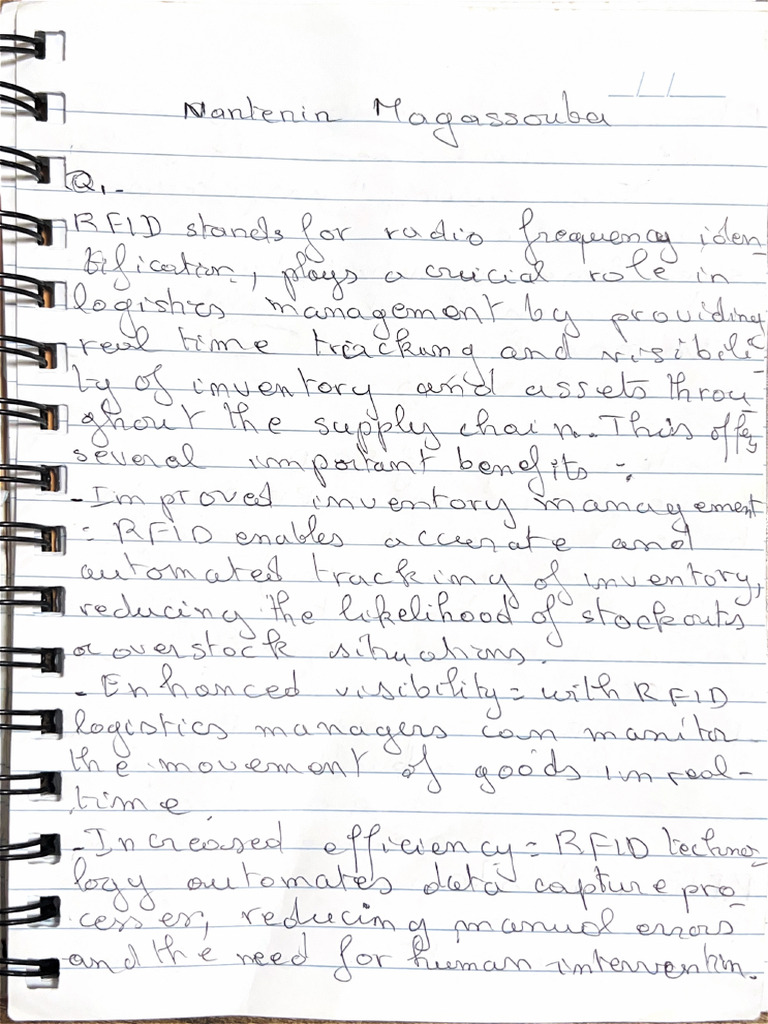 __/__/____
Nantenin Magassouba
Q1.-
RFID stands for radio frequency iden-
tification, plays a crucial role in
logistics management by providing
real time tracking and visibili-
ty of inventory and assets throu-
ghout the supply chain. This offers
several important benefits :
- Improved inventory management
: RFID enables accurate and
automated tracking of inventory,
reducing the likelihood of stockouts
or overstock situations.
- Enhanced visibility = with RFID
logistics managers can monitor
the movement of goods in real-
time.
- Increased efficiency = RFID techno-
logy automates data capture pro-
cesses, reducing manual errors
and the need for human intervention.